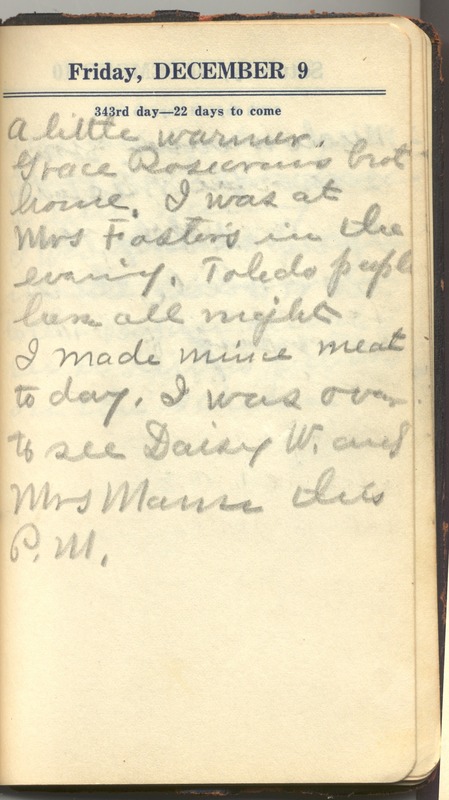 Friday, DECEMBER 9
343rd day—22 days to come
A little warmer.
Grace Rosecrans brot
home. I was at
Mrs Fosters in the
evening. Toledo people
here all night
I made mince meat
to day. I was over
to see Daisy W. and
Mrs Mann this
P.M.